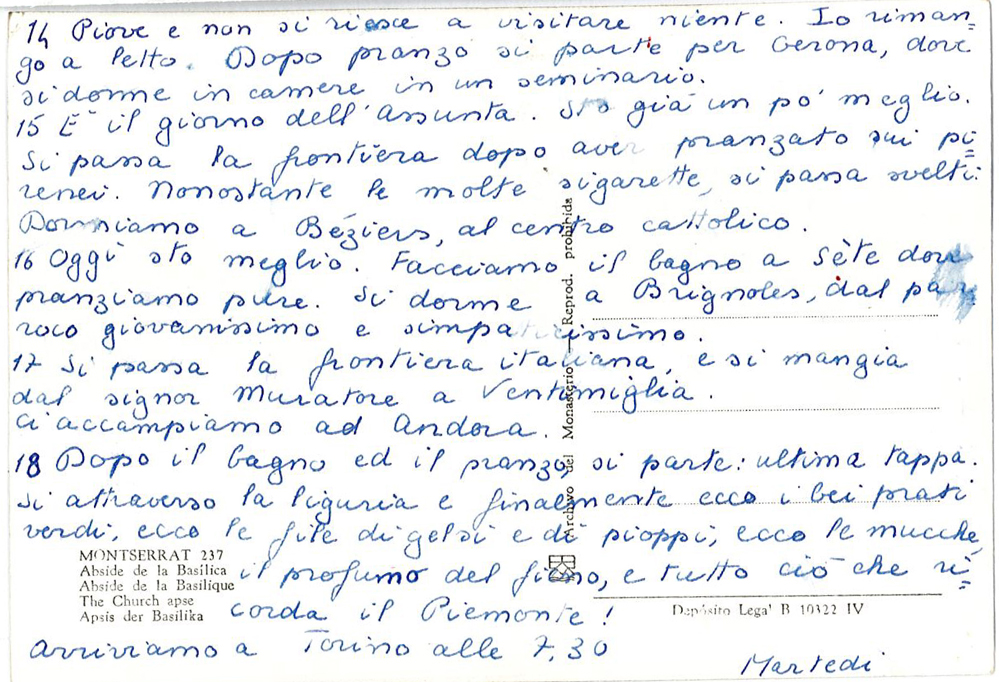 14 Piove e non si riesce a visitare niente. Io riman=
go a letto. Dopo pranzo si parte per Gerona, dove
si dorme in camere in un seminario.
15 È il giorno dell'Assunta. Sto già un po' meglio.
Si passa la frontiera dopo aver pranzato sui pi=
renei. Nonostante le molte sigarette, si passa svelti.
Dormiamo a Béziers, al centro cattolico.
16 Oggi sto meglio. Facciamo il bagno a Sète dove
pranziamo pure. Si dorme a Brignoles, dal par=
roco giovanissimo e simpaticissimo.
17 Si passa la frontiera italiana, e si mangia
dal signor Muratore a Ventimiglia.
Ci accampiamo ad Andora.
18 Dopo il bagno ed il pranzo si parte: ultima tappa.
Si attraverso la liguria e finalmente ecco i bei prati
verdi, ecco le file di gelsi e di pioppi, ecco le mucche,
il profumo del fieno, e tutto ciò che ri=
corda il Piemonte!
Arriviamo a Torino alle 7,30
Martedi
MONTSERRAT 237
Abside de la Basílica
Abside de la Basilique
The Church apse
Apsis der Basilika
Archivo del Monasterio - Reprod. prohibida
Depósito Legal B 10322 IV